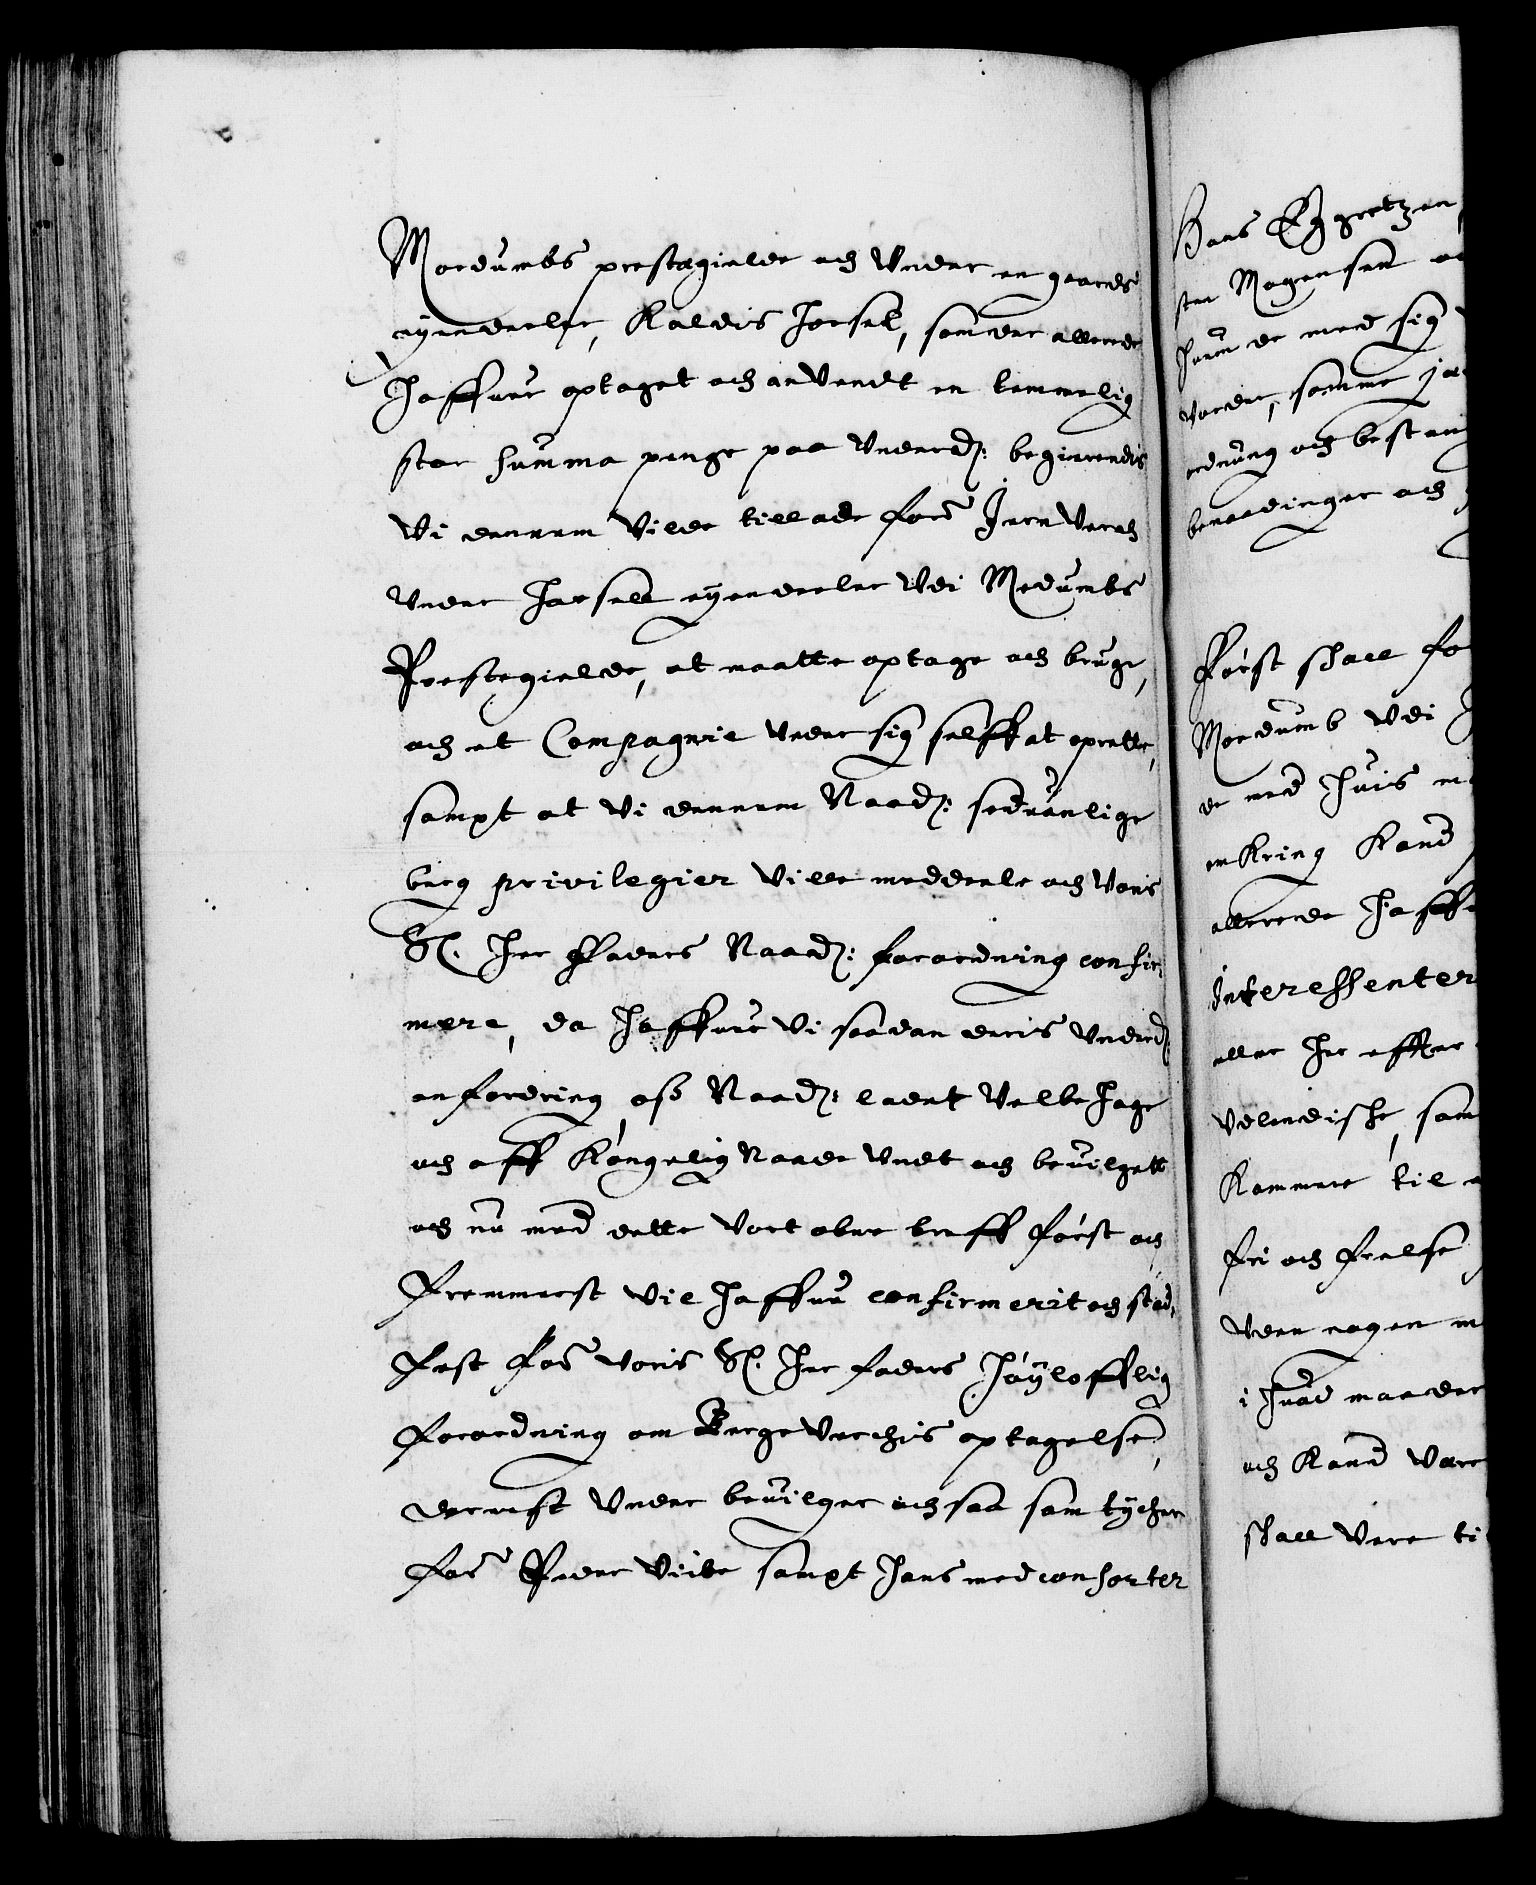 Modumbs prestegielde och under en gaards
eyendeele, Kaldis Fossel, som der allerede
haffuer optaget och anvendt en temmelig
stor summa penge paa underd: begierendis
Vi dennem Vilde tillade for.e Jern Verch
under Fossell eyendeeler udi Modumbs
Prestegielde, at maatte optage och bruge,
och et Compagnie under sig self at oprette,
sampt at Vi dennem Naad: sedvanlige
berg privilegier Ville meddeele och Voris
S. Her Faders Naad: forordning confir-
mere, da haffuer Vi saadan deris underd:
anfordring oss Naad: ladet Velbehage
och aff Kongelig Naade undt och bevilgett
och nu med dette Vort obne breff først och
fremmerst Vil haffue confirmerit och stad-
fest for.e voris S. Her faders høylofflig
forordning om Bergeverchis optagelse,
dernest Under bevilger och saa sam tycher
for.e Peder Viibe sampt hans med consorter

Hans Eggertzen
ster Mogensen
huem de med sig
vorder, somme
ordnung och bestan
benaadinger och

Først skall fo
Modumb udi
de med huis
omkring Kand
allerede haff
interessenter
eller her effter
udlendiske, som
Kommer til
fri och frelse
uden nogen
i huad maade
och Kand Vere
skall Vere ti